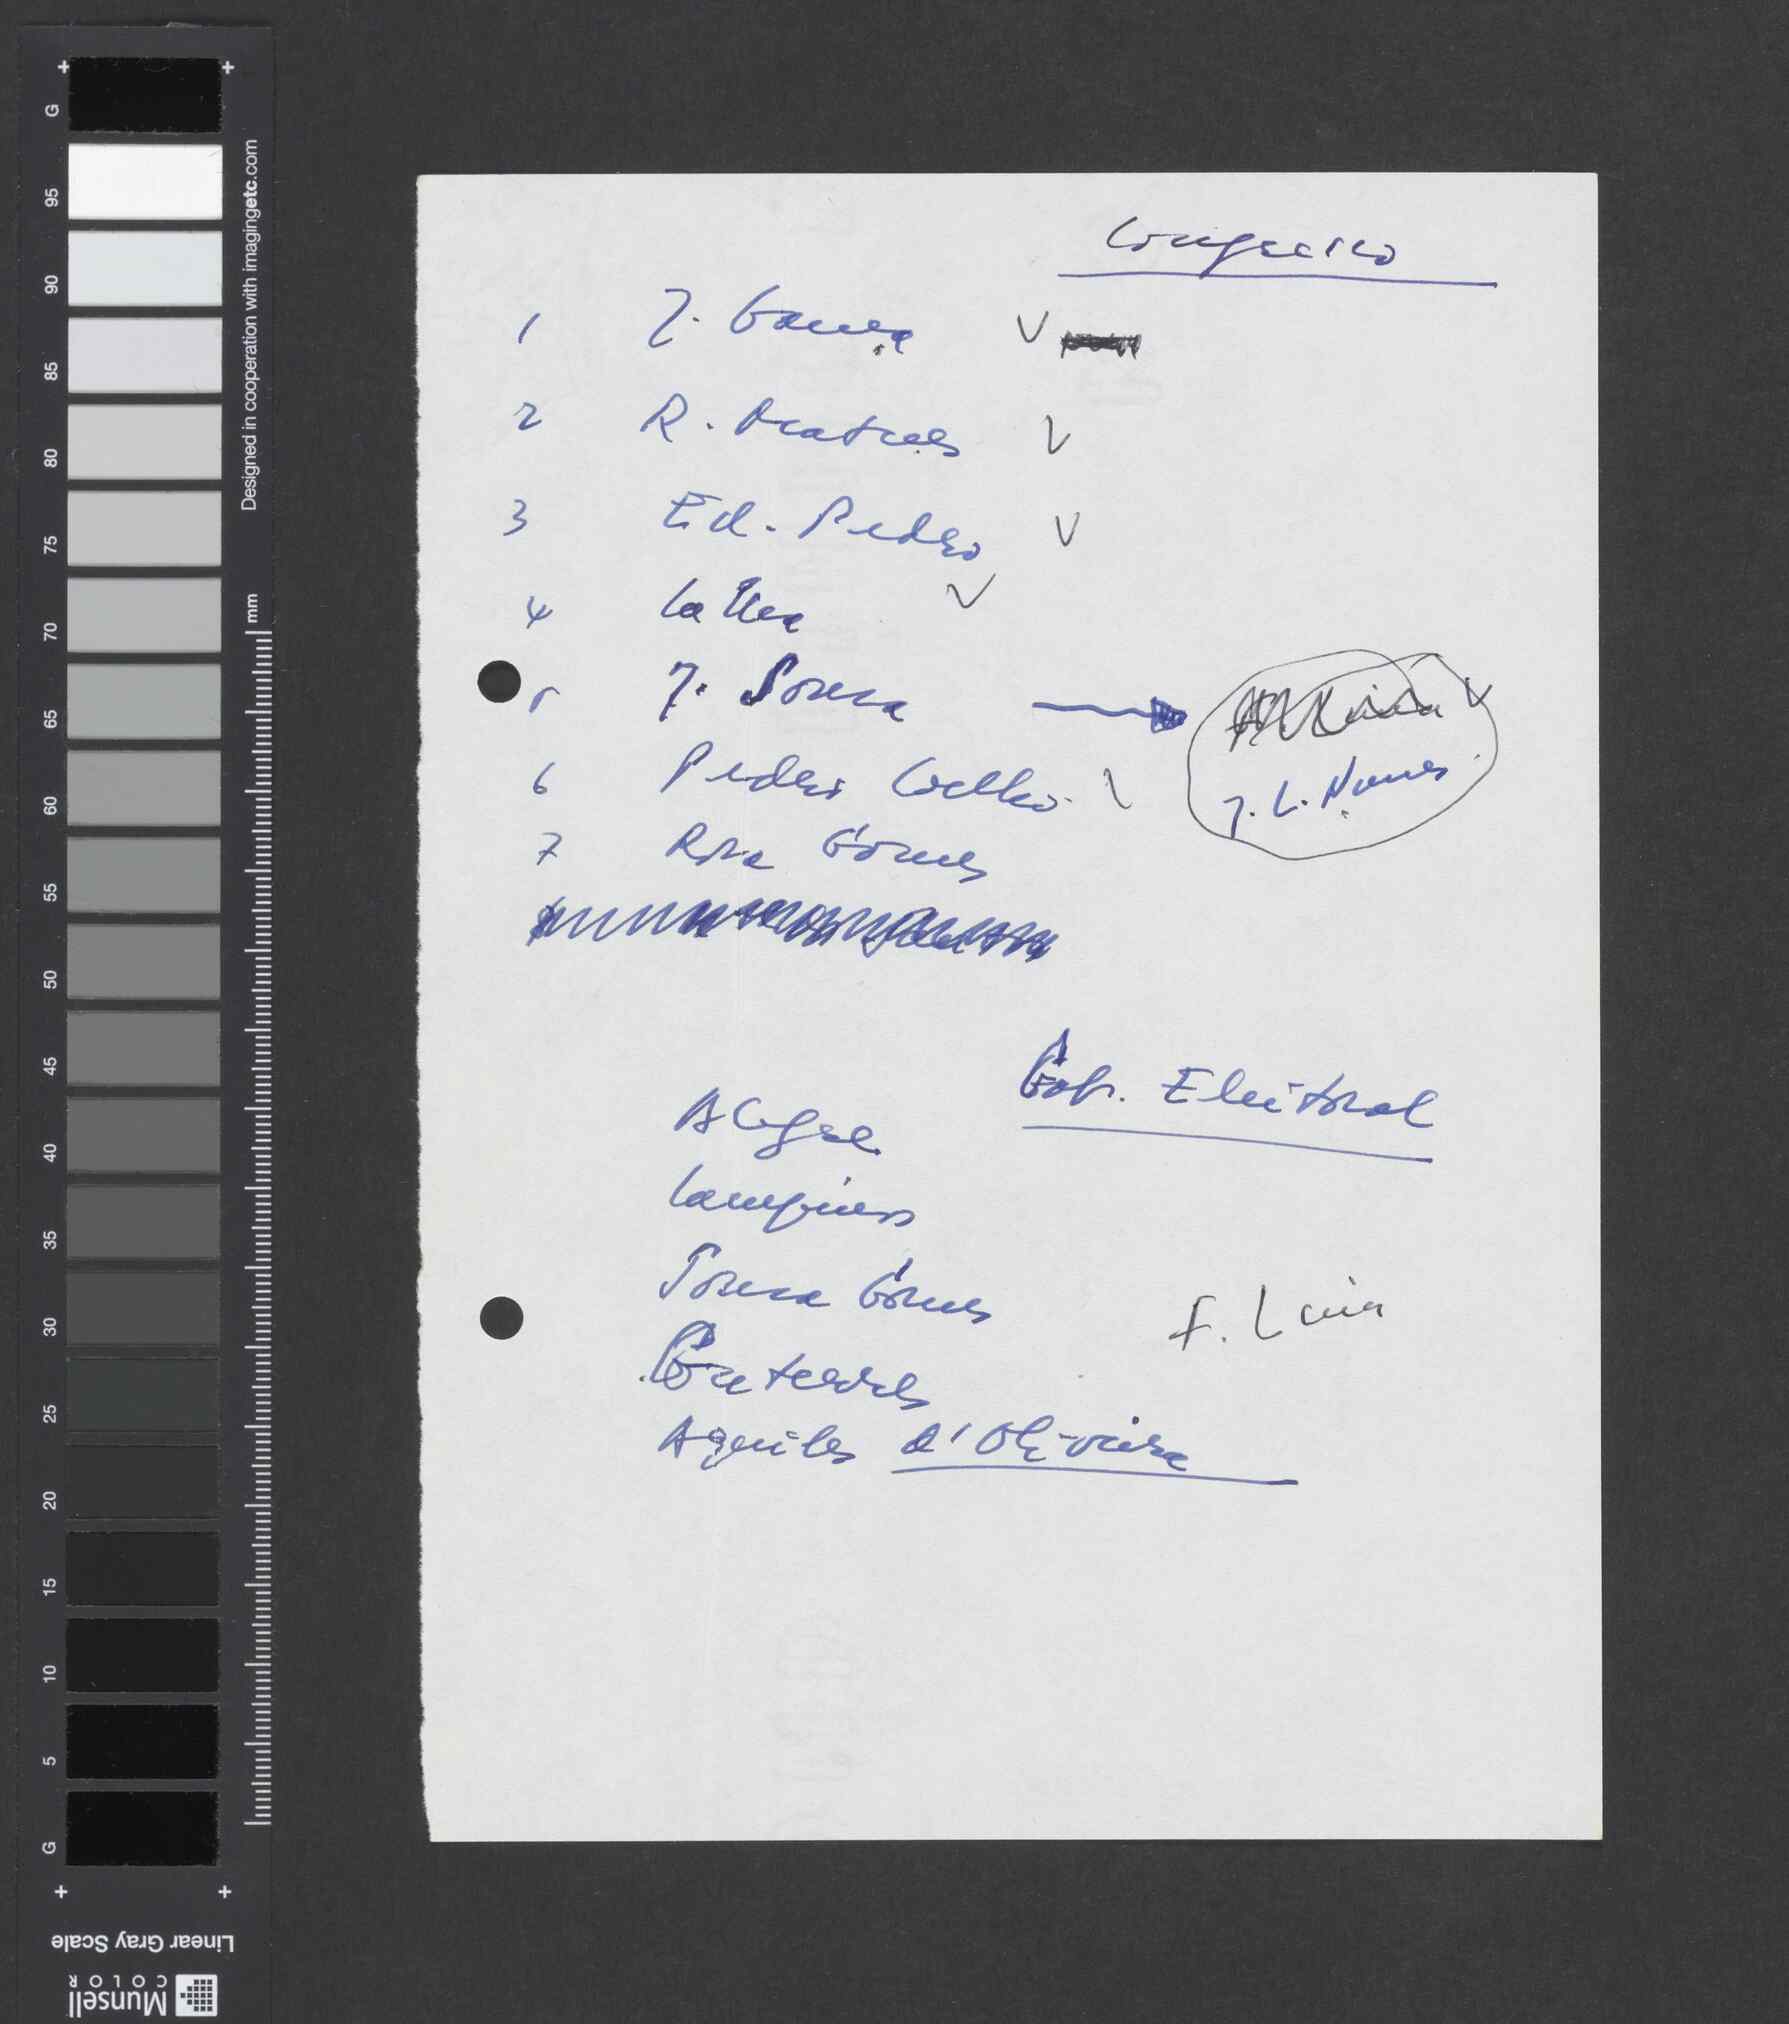 Congresso
1 J. Gama V
2 R. Mateus V
3 Ed. Pedro V
4 Catta V
5 J. Sousa
J. L. Nunes
6 Pedro Coelho
7 Rosa Gomes
Gab. Eleitoral
Alegre
Campinos
Sousa Gomes
F. Luís
Guterres
Aquiles d'Oliveira
G 95 90 85 80 75 70 65 60 55 50 45 40 35 30 25 20 15 10 5 G
Designed in cooperation with imagingetc.com
mm
Linear Gray Scale
Munsell
COLOR